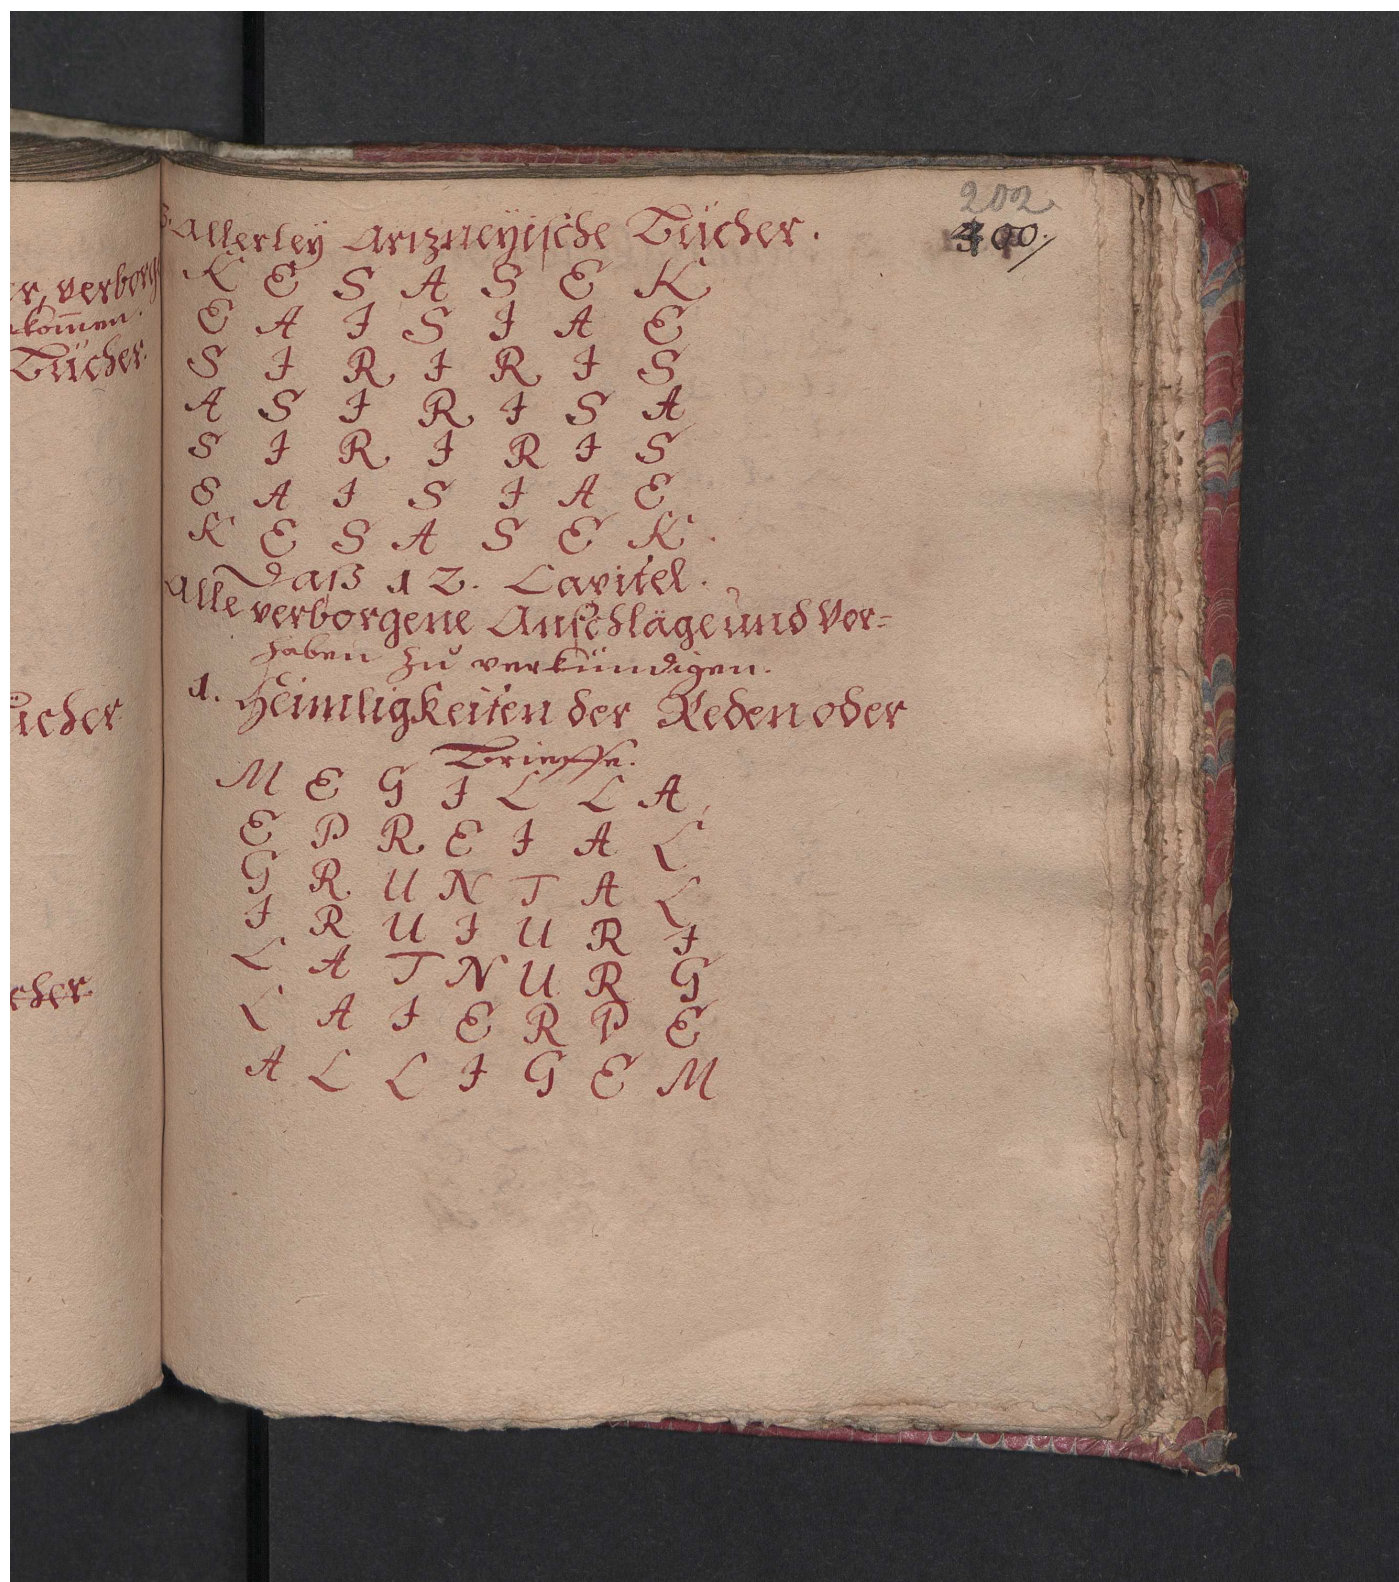 er, verborg
kom̄en.
Bücher.
ücher
cher.
202.
400.
3. Allerley Artzneyische Bücher.
K E S A S E K
E A I S I A E
S I R I R I S
A S I R I S A
S I R I R I S
E A I S I A E
K E S A S E K.
Daß 12. Capitel.
Alle verborgene Anschläge und Vor=
haben zu verkündigen.
1. Heimligkeiten der Reden oder
Brieffe.
M E G I L L A
E P R E I A L
G R U N T A L
I R U I U R I
L A T N U R G
L A I E R P E
A L L I G E M